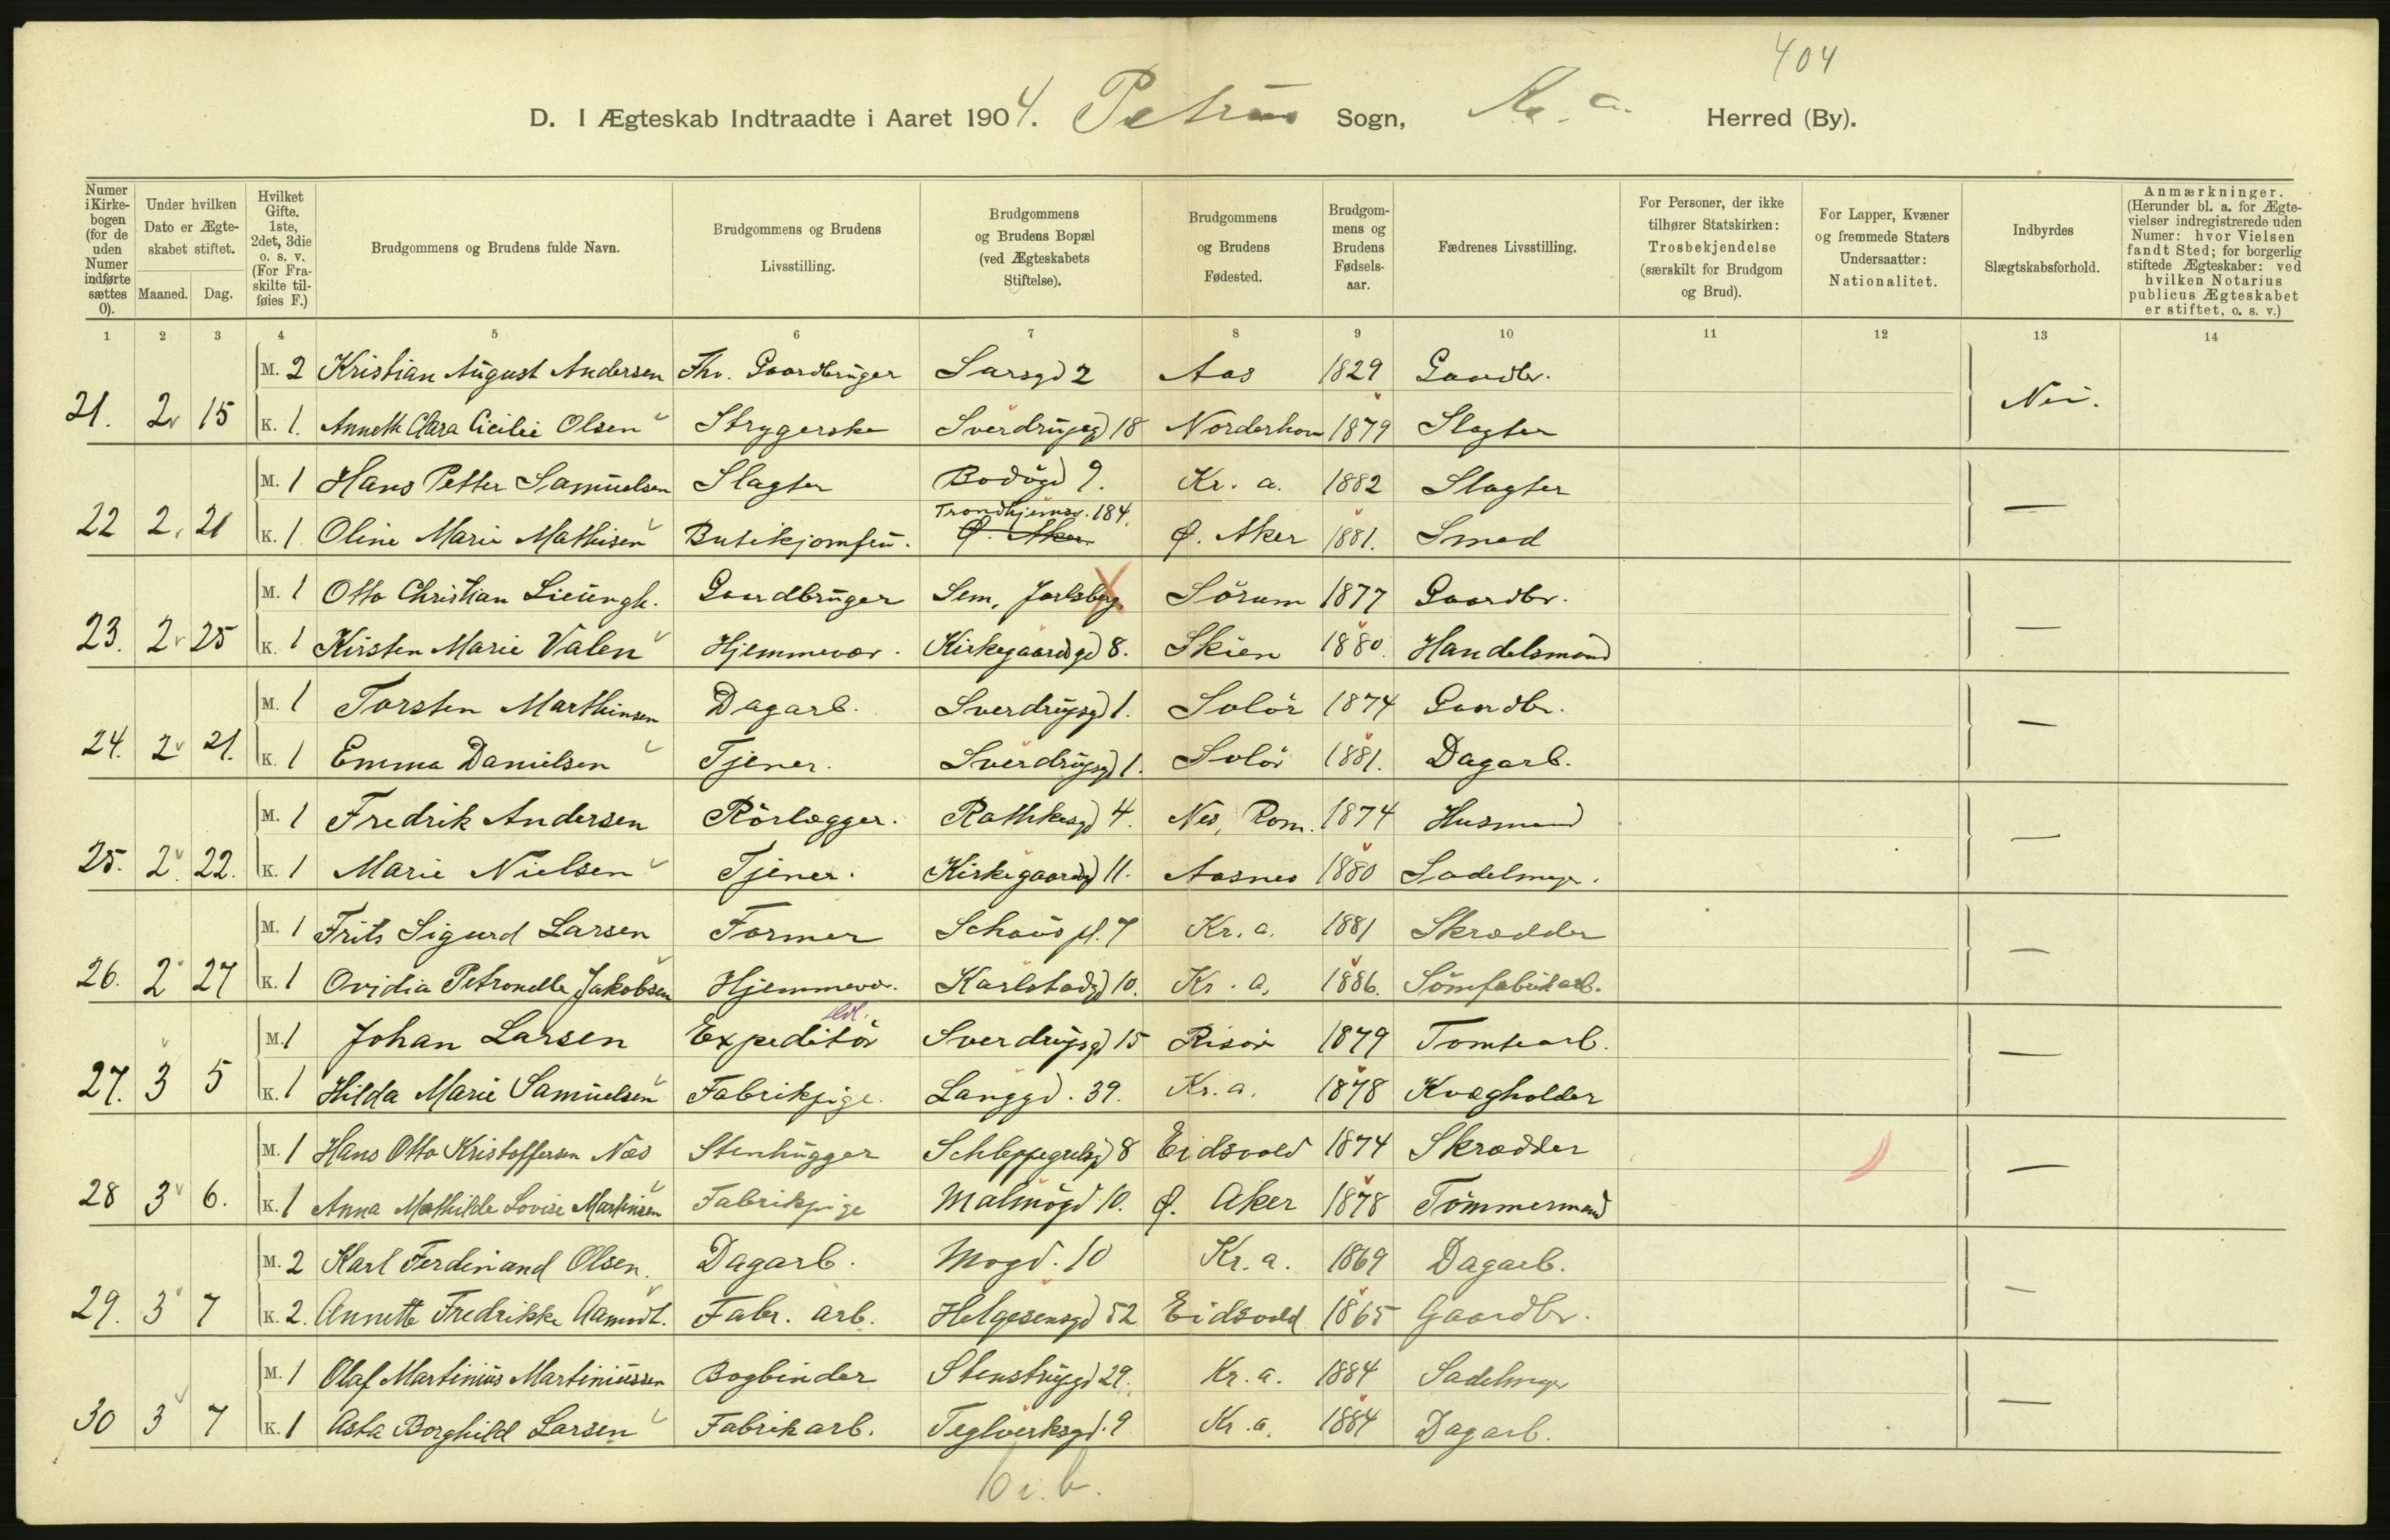 404
D. I Ægteskab Indtraadte i Aaret 1904. Petrus Sogn, Kr. a. Herred (By).
Numer i Kirke-bogen (for de uden Numer indførte sættes 0).
Under hvilken Dato er Ægte-skabet stiftet.
Maaned. Dag.
Hvilket Gifte. 1ste, 2det, 3die o. s. v. (For Fra-skilte til-føies F.)
Brudgommens og Brudens fulde Navn.
Brudgommens og Brudens Livsstilling.
Brudgommens og Brudens Bopæl (ved Ægteskabets Stiftelse).
Brudgommens og Brudens Fødested.
Brudgom-mens og Brudens Fødsels-aar.
Fædrenes Livsstilling.
For Personer, der ikke tilhører Statskirken: Trosbekjendelse (særskilt for Brudgom og Brud).
For Lapper, Kvæner og fremmede Staters Undersaatter: Nationalitet.
Indbyrdes Slægtskabsforhold.
Anmærkninger. (Herunder bl. a. for Ægte-vielser indregistrerede uden Numer: hvor Vielsen fandt Sted; for borgerlig stiftede Ægteskaber: ved hvilken Notarius publicus Ægteskabet er stiftet, o. s. v.)
1 2 3 4 5 6 7 8 9 10 11 12 13 14
M. 2 Kristian August Andersen Fhv. Gaardbruger Sarsgd 2 Aas 1829 Gaardbr.
21. 2 15 K. 1. Anneth Clara Cicilie Olsen Strygerske Sverdrupsgd 18 Norderhov 1879 Slagter Nei.
M. 1 Hans Petter Samuelsen Slagter Bodögd 9. Kr. a. 1882 Slagter
Trondhjemsv. 184.
22 2. 21 K. 1 Oline Marie Mathisen Butikjomfru. Ø. Aker Ø. Aker 1881. Smed —
M. 1 Otto Christian Lieungh. Gaardbruger Sem, Jarlsberg Sörum 1877 Gaardbr.
23. 2 25 K. 1 Kirsten Marie Valen Hjemmevær. Kirkegaardsgd 8. Skien 1880. Handelsmand —
M. 1 Torsten Marthinsen Dagarb. Sverdrupsgd 1. Solör 1874 Gaardbr.
24. 2 21. K. 1 Emma Danielsen Tjener. Sverdrupsgd 1. Solör 1881. Dagarb. —
M. 1 Fredrik Andersen Rörlægger. Rathkesgd 4. Nes, Rom. 1874 Husmand
25. 2. 22. K. 1 Marie Nielsen Tjener. Kirkegaardsgd 11. Aasnes 1880 Sadelmager. —
M. 1 Frits Sigurd Larsen Former Schous pl. 7 Kr. a. 1881 Skrædder
26. 2 27 K. 1 Ovidia Petronelle Jakobsen Hjemmevær. Karlstadgd 10. Kr. a. 1886. Sömfabrikarb. —
M. 1 Johan Larsen Expeditör Sverdrupsgd 15 Risör 1879 Tomtearb.
27. 3 5 K. 1 Hilda Marie Samuelsen Fabrikpige. Langgd. 39. Kr. a. 1878 Kvægholder —
M. 1 Hans Otto Kristoffersen Næs Stenhugger Schleppegrelsgd 8 Eidsvold 1874 Skrædder
28 3 6. K. 1 Anna Mathilde Lovise Martinsen Fabrikpige Malmögd 10. Ø. Aker 1878 Tömmermand —
M. 2 Karl Ferdinand Olsen. Dagarb. Mogd. 10 Kr. a. 1869 Dagarb.
29. 3 7 K. 2. Annette Fredrikke Aamodt. Fabr. arb. Helgesensgd 52 Eidsvold 1865 Gaardbr. —
M. 1 Olaf Martinius Martiniussen Bogbinder Stenstrupgd 29. Kr. a. 1884 Sadelmager
30 3 7 K. 1 Asta Borghild Larsen Fabrikarb. Teglverksgd. 9 Kr. a. 1884 Dagarb. —